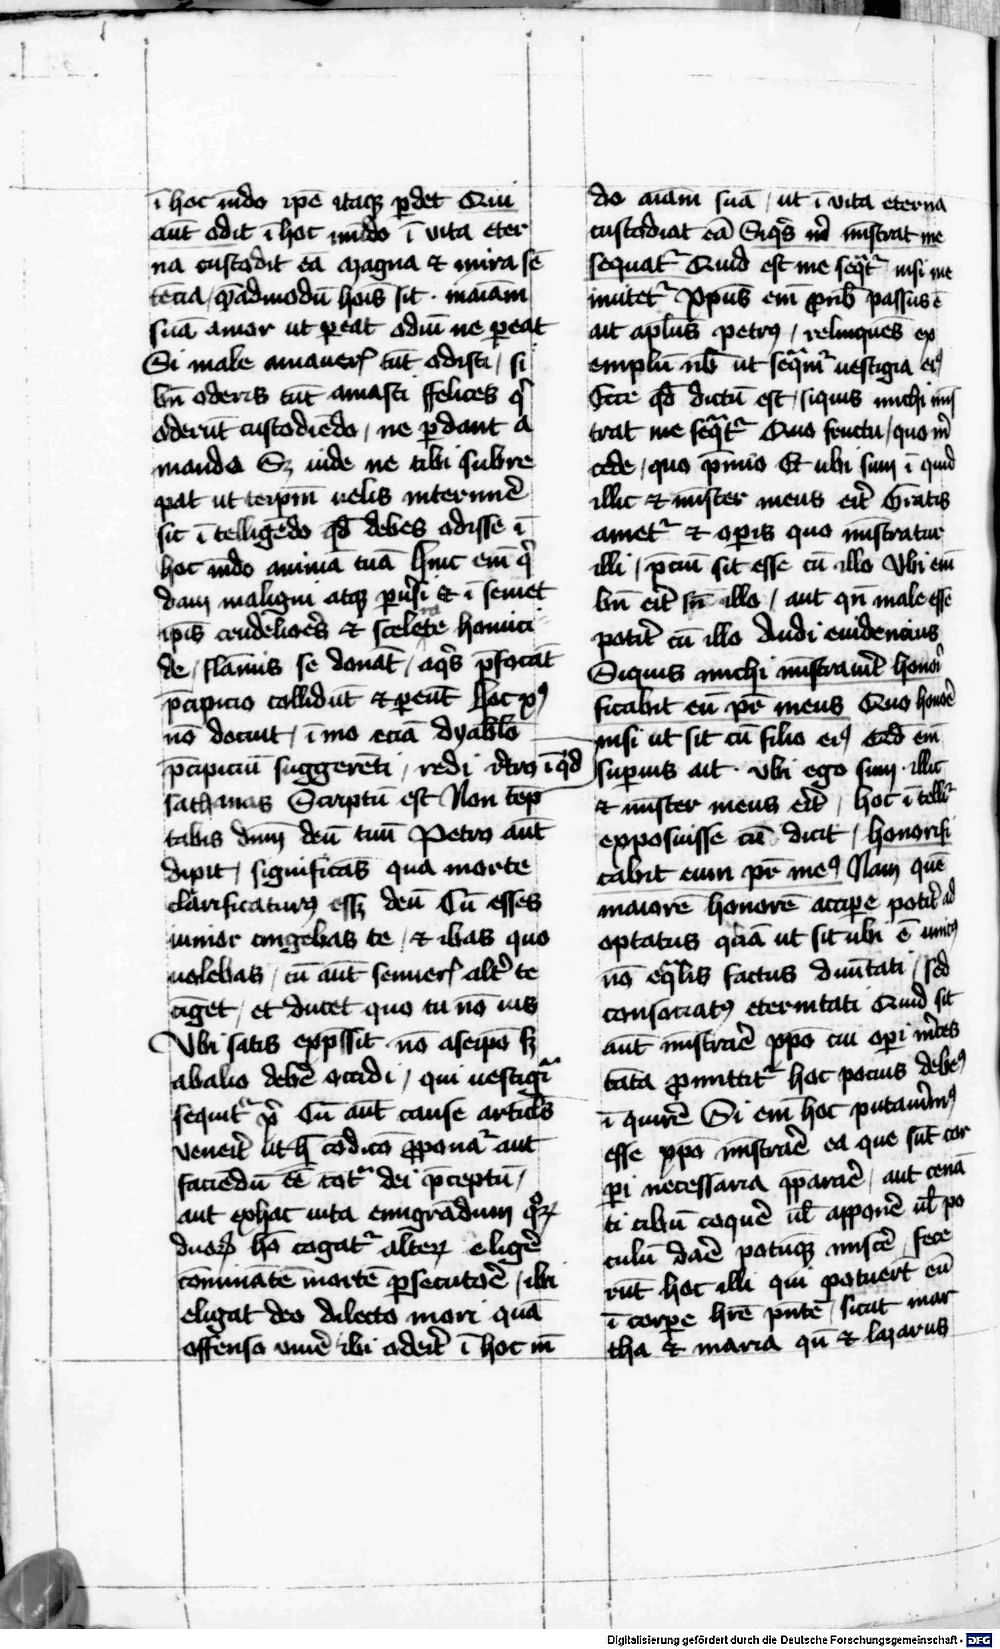 ī hoc mūdo ip̄e itaqꝫ ꝑdet Qui
aūt odit ī hoc mūdo ī vita eter
na custodit eā Magna et mira sē
tēcia / quēadmodū hoīs sit · ī aīam
suā amor ut ꝑeat odiū ne ꝑeat
Si male amaueris tūc odisti / si
bn̄ oderis tūc amasti ffelices qͥ
oderūt custodiēdo / ne ꝑdant a
mando Sꝫ uide ne tibi subre
pat ut teip̄m uelis interimē
sic ītelligēdo qd̄ debes odisse ī
hoc mūdo animā tuā hinc em̄ qͥ
dam maligni atqꝫ ꝑuͥsi et ī semet
ip̄is crudelioēs et sceleͬᵃte homici
de / flāmis se donāt / aqͥs p̄focāt
p̄cipicio collidūt et ꝑeūt hoc xp̄ꝰ
nō docuit / īmo eciā dyabl̄o
p̄cipiciū suggerēti / redi retro īqͥd
sathanas Scriptū est Non tēp
tabis dnm̄ deū tuū Petro aūt
dixit / significās qua morte
clarificaturꝰ eēt deū Cū esses
iunior cingebas te / et ibas quo
uolebas / cū aūt senueris altͬ te
cīget / et ducet quo tu nō uis
Vbi satis exp̄ssit nō aseip̄o sꝫ
abalio debē occidi / qui uestigͥa
sequitᷣ xp̄i Cū aūt cause articlͤs
veneͥt ut hͨ cōdicō ꝓponatᷣ aut
faciēdū eē cōtᷓ dei p̄ceptū /
aut exhac uita emigrādum qͦrꝫ
duoꝝ hō cogatᷣ alteꝝ eligē
cōminātē mortē ꝑsecutoē / ibi
eligat deo dilecto mori quā
offenso viuē ibi odeͥt ī hoc mū
do aīam suā / ut ī vita eterna
custodiat eā Siqͥs mͥ mīstrat me
sequatᷣ Quid est me seqͣtᷣ nisi me
imitetᷣ Xpūs em̄ ꝓ nob̄ passus ē
ait apl̄us petrꝰ / relinquēs ex
emplū nob̄ ut seqͣmᷣ uestigia eiꝰ
Ecce qd̄ dictū est / siquis michi mīs
trat me seqͣtᷣ Quo fructu / quo mͬ
cede / quo p̄mio Et ubi sum ī quid
illic et mīster meus eͥt Gratis
ametᷣ et oꝑis quo mīstratur
illi / p̄ciū sit esse cū illo Vbi em̄
bn̄ eͥt sn̄ illo / aut qn̄ male esse
potͥt cū illo Audi euidencius
Siquis michi mīstrauͥt honoͥ
ficabit eū pr̄ meus Quo honoͤ
nisi ut sit cū filio eiꝰ Qd̄ em̄
suꝑius ait · vbi ego sum · illic
et mīster meus eͥt / hoc ītelliᷣ
exposuisse cū dicit / honorifi
cabit eum pr̄ meꝰ Nam quē
maiorē honorē accipe potͥt ad
optatus quā ut sit ubi ē unicꝰ
nō eqͣlis factus diuītati / sed
consociatꝰ eternitati Quid sit
aūt mīstraē xpō cui oꝑi mͬces
tāta ꝓmittitᷣ hoc pocius debeꝰ
īquirē Si em̄ hoc putauͥmꝰ
esse xpō mīstraē ea que sūt cor
ꝑi necessaria p̄paraē / aut cenā
ti cibū coquē ul̄ apponē ul̄ po
culū daē potūqꝫ miscē / fece
rūt hoc illi qui potuerūt eū
ī corꝑe hr̄e p̄ntē / sicut mar
tha et maria qn̄ et lazarus
Digitalisierung gefördert durch die Deutsche Forschungsgemeinschaft - DFG